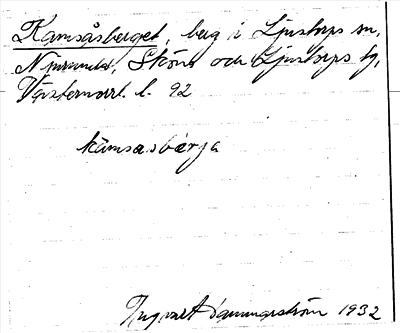 Kamsåsberget, berg i Ljustorps sn,
Njurunda, Sköns och Ljustorps tg,
Västernorrl. l. 92
kämsasbærja
Ingvalt Dammarström 1932